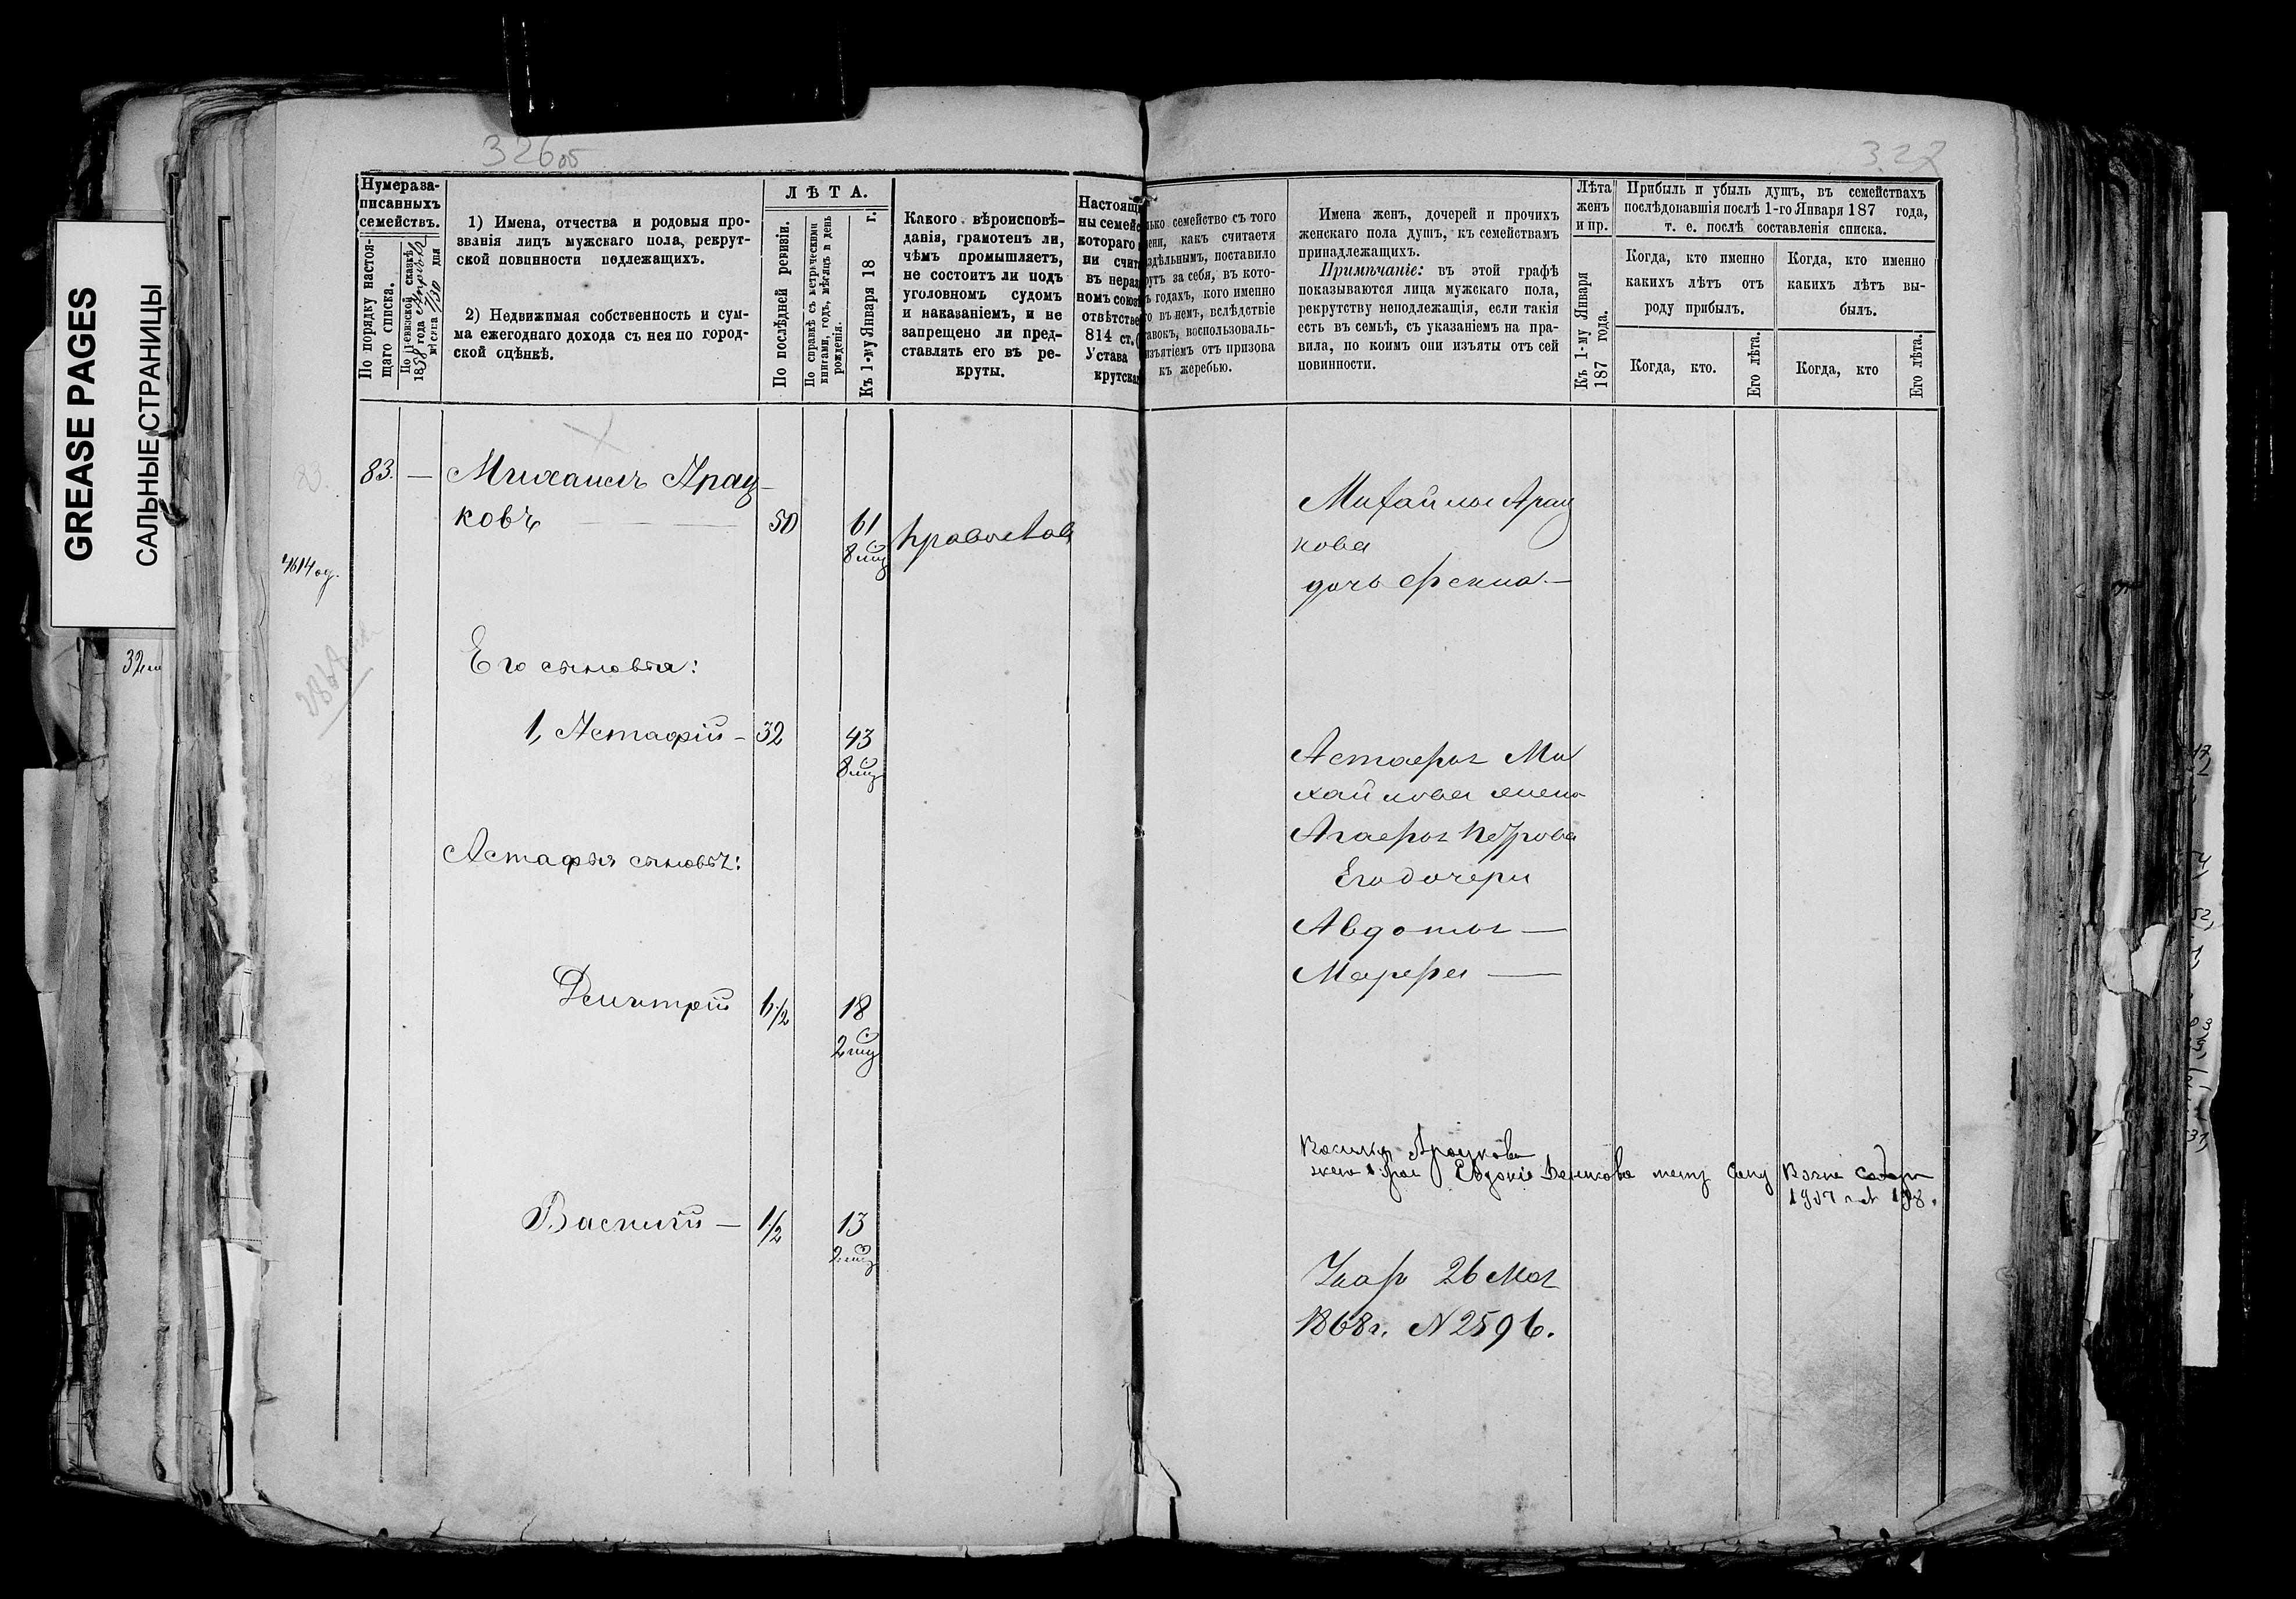 GREASE PAGES
САЛЬНЫЕ СТРАНИЦЫ
326 об
Нумера за-
писанныхъ
семействъ.
По порядку настоя-
щаго списка.
По ревизской сказкѣ
1858 года Апрѣля
мѣсяца 30 дня
1) Имена, отчества и родовыя про-
званія лицъ мужскаго пола, рекрут-
ской повинности подлежащихъ.
2) Недвижимая собственность и сум-
ма ежегоднаго дохода съ нея по город-
ской оцѣнкѣ.
ЛѢТА.
По послѣдней ревизіи.
По справкѣ съ метрическими
книгами, годъ, мѣсяцъ и день
рожденія.
Къ 1-му Января 18 г.
Какого вѣроисповѣ-
данія, грамотенъ ли,
чѣмъ промышляетъ,
не состоитъ ли подъ
уголовномъ судомъ
и наказаніемъ, и не
запрещено ли пред-
ставлять его въ ре-
круты.
Настоящ
ны семейс
котораго
ни счит
въ нераз
номъ союз
отвѣтстве
814 ст.
Устава
крутска
83. — Михаилъ Арац-
ковъ 50 61 Православ
8 мц
Его сыновья:
1, Астафій - 32 43
8 мц
Астафья сыновья:
Дмитрій 6 1/2 18
2 мц
Василій — 1 1/2 13
2 мц
32
327
лько семейство съ того
мени, какъ считаетя
здѣльнымъ, поставило
рутъ за себя, въ кото-
ъ годахъ, кого именно
го въ немъ, вслѣдствіе
авокъ, воспользоваль-
изъятіемъ отъ призова
къ жеребью.
Имена женъ, дочерей и прочихъ
женскаго пола душъ, къ семействамъ
принадлежащихъ.
Примѣчаніе: въ этой графѣ
показываются лица мужскаго пола,
рекрутству неподлежащія, если такія
есть въ семьѣ, съ указаніемъ на пра-
вила, по коимъ они изъяты отъ сей
повинности.
Лѣта
женъ
и пр.
Къ 1-му Января
187 года.
Прибыль и убыль душъ, въ семействахъ
послѣдовавшія послѣ 1-го Января 187 года,
т. е. послѣ составленія списка.
Когда, кто именно
какихъ лѣтъ отъ
роду прибылъ.
Когда, кто именно
какихъ лѣтъ вы-
былъ.
Когда, кто.
Его лѣта.
Когда, кто
Его лѣта.
Михайлы Арац
кова
дочь —
Астафья Ми
хайлова жена
Агафья Петрова
Его дочери
Авдотья —
Марфа —
Василія Арацкова
жена Евдокія
26 Мая
1868 г. N 2596.